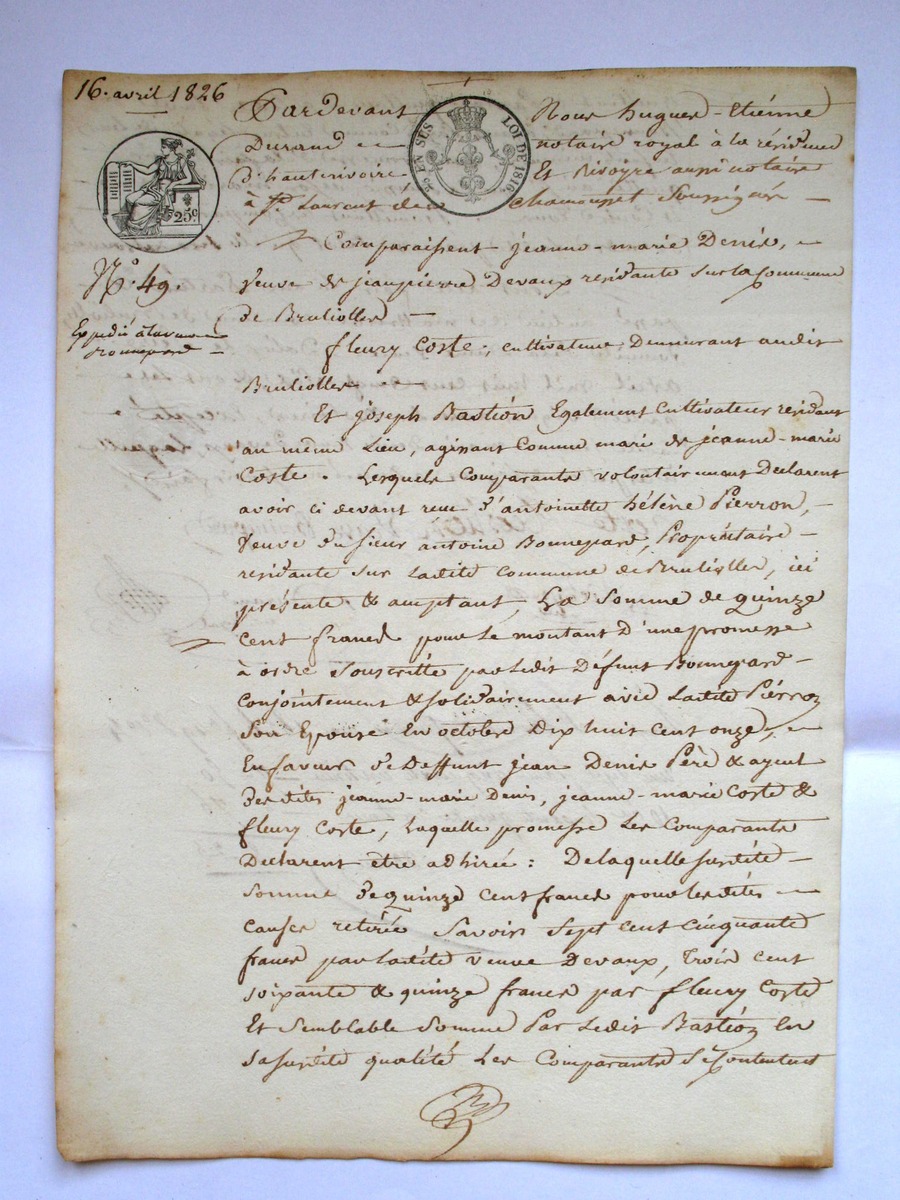 16. avril 1826
Pardevant Nous hugues - Etienne
Durand notaire royal à la résidence
d'hauterivoire Et Rivoyre aussi notaire
à St. Laurent de Chamousset Soussignés
EN SUS LOI DE 1816.
25c.
Comparaissent jeanne-marie Denis,
Veuve de jeanpierre Devaux residante sur la Commune
de Brulioller
No. 49.
Expedié à la veuve
Bonnepard
fleury Coste, cultivateur Demeurant audit
Brulioller
Et joseph Bastion Egalement Cultivateur residant
au même Lieu, agissant Comme mari de jeanne-marie
Coste. Lesquels Comparants volontairement Declarent
avoir ci devant reçu d'antoinette hélène Pierron,
Veuve du sieur antoine Bonnepard, Propriétaire
residante sur Ladite Commune de Brulioller, ici
présente & acceptant, La Somme de quinze
Cent francs pour Le montant D'une promesse
à ordre Souscritte par Ledit Défunt Bonnepard
Conjointement & solidairement avec Ladite Pierron
Son Epouse En octobre Dix huit Cent onze,
En faveur de Deffunt jean Denis Père & ayeul
desdites jeanne-marie Denis, jeanne-marie Coste &
fleury Coste, Laquelle promesse Les Comparants
Declarent être adhirée : De laquelle susdite
Somme de quinze Cent francs pour lesdites
Causes retirée Savoir Sept Cent Cinquante
francs par Ladite veuve Devaux, Trois Cent
soixante & quinze francs par fleury Coste
Et Semblable Somme Par Ledit Bastion En
sa susdite qualité Les Comparants Se Contentent